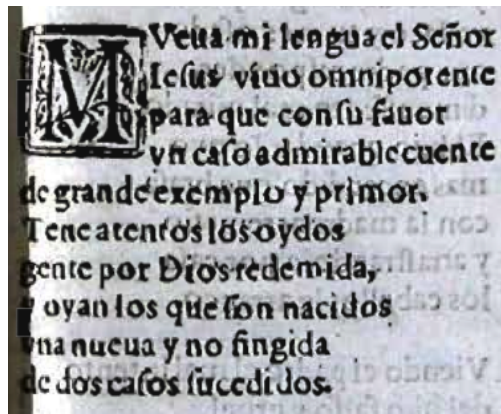 MVeua mi lengua el Señor
Iesus viuo omnipotente
para que con su fauor
vn caso admirable cuente
de grande exemplo y primor.
Tene atentos los oydos
gente por Dios redemida,
y oyan los que son nacidos
vna nueua y no fingida
de dos casos sucedidos.